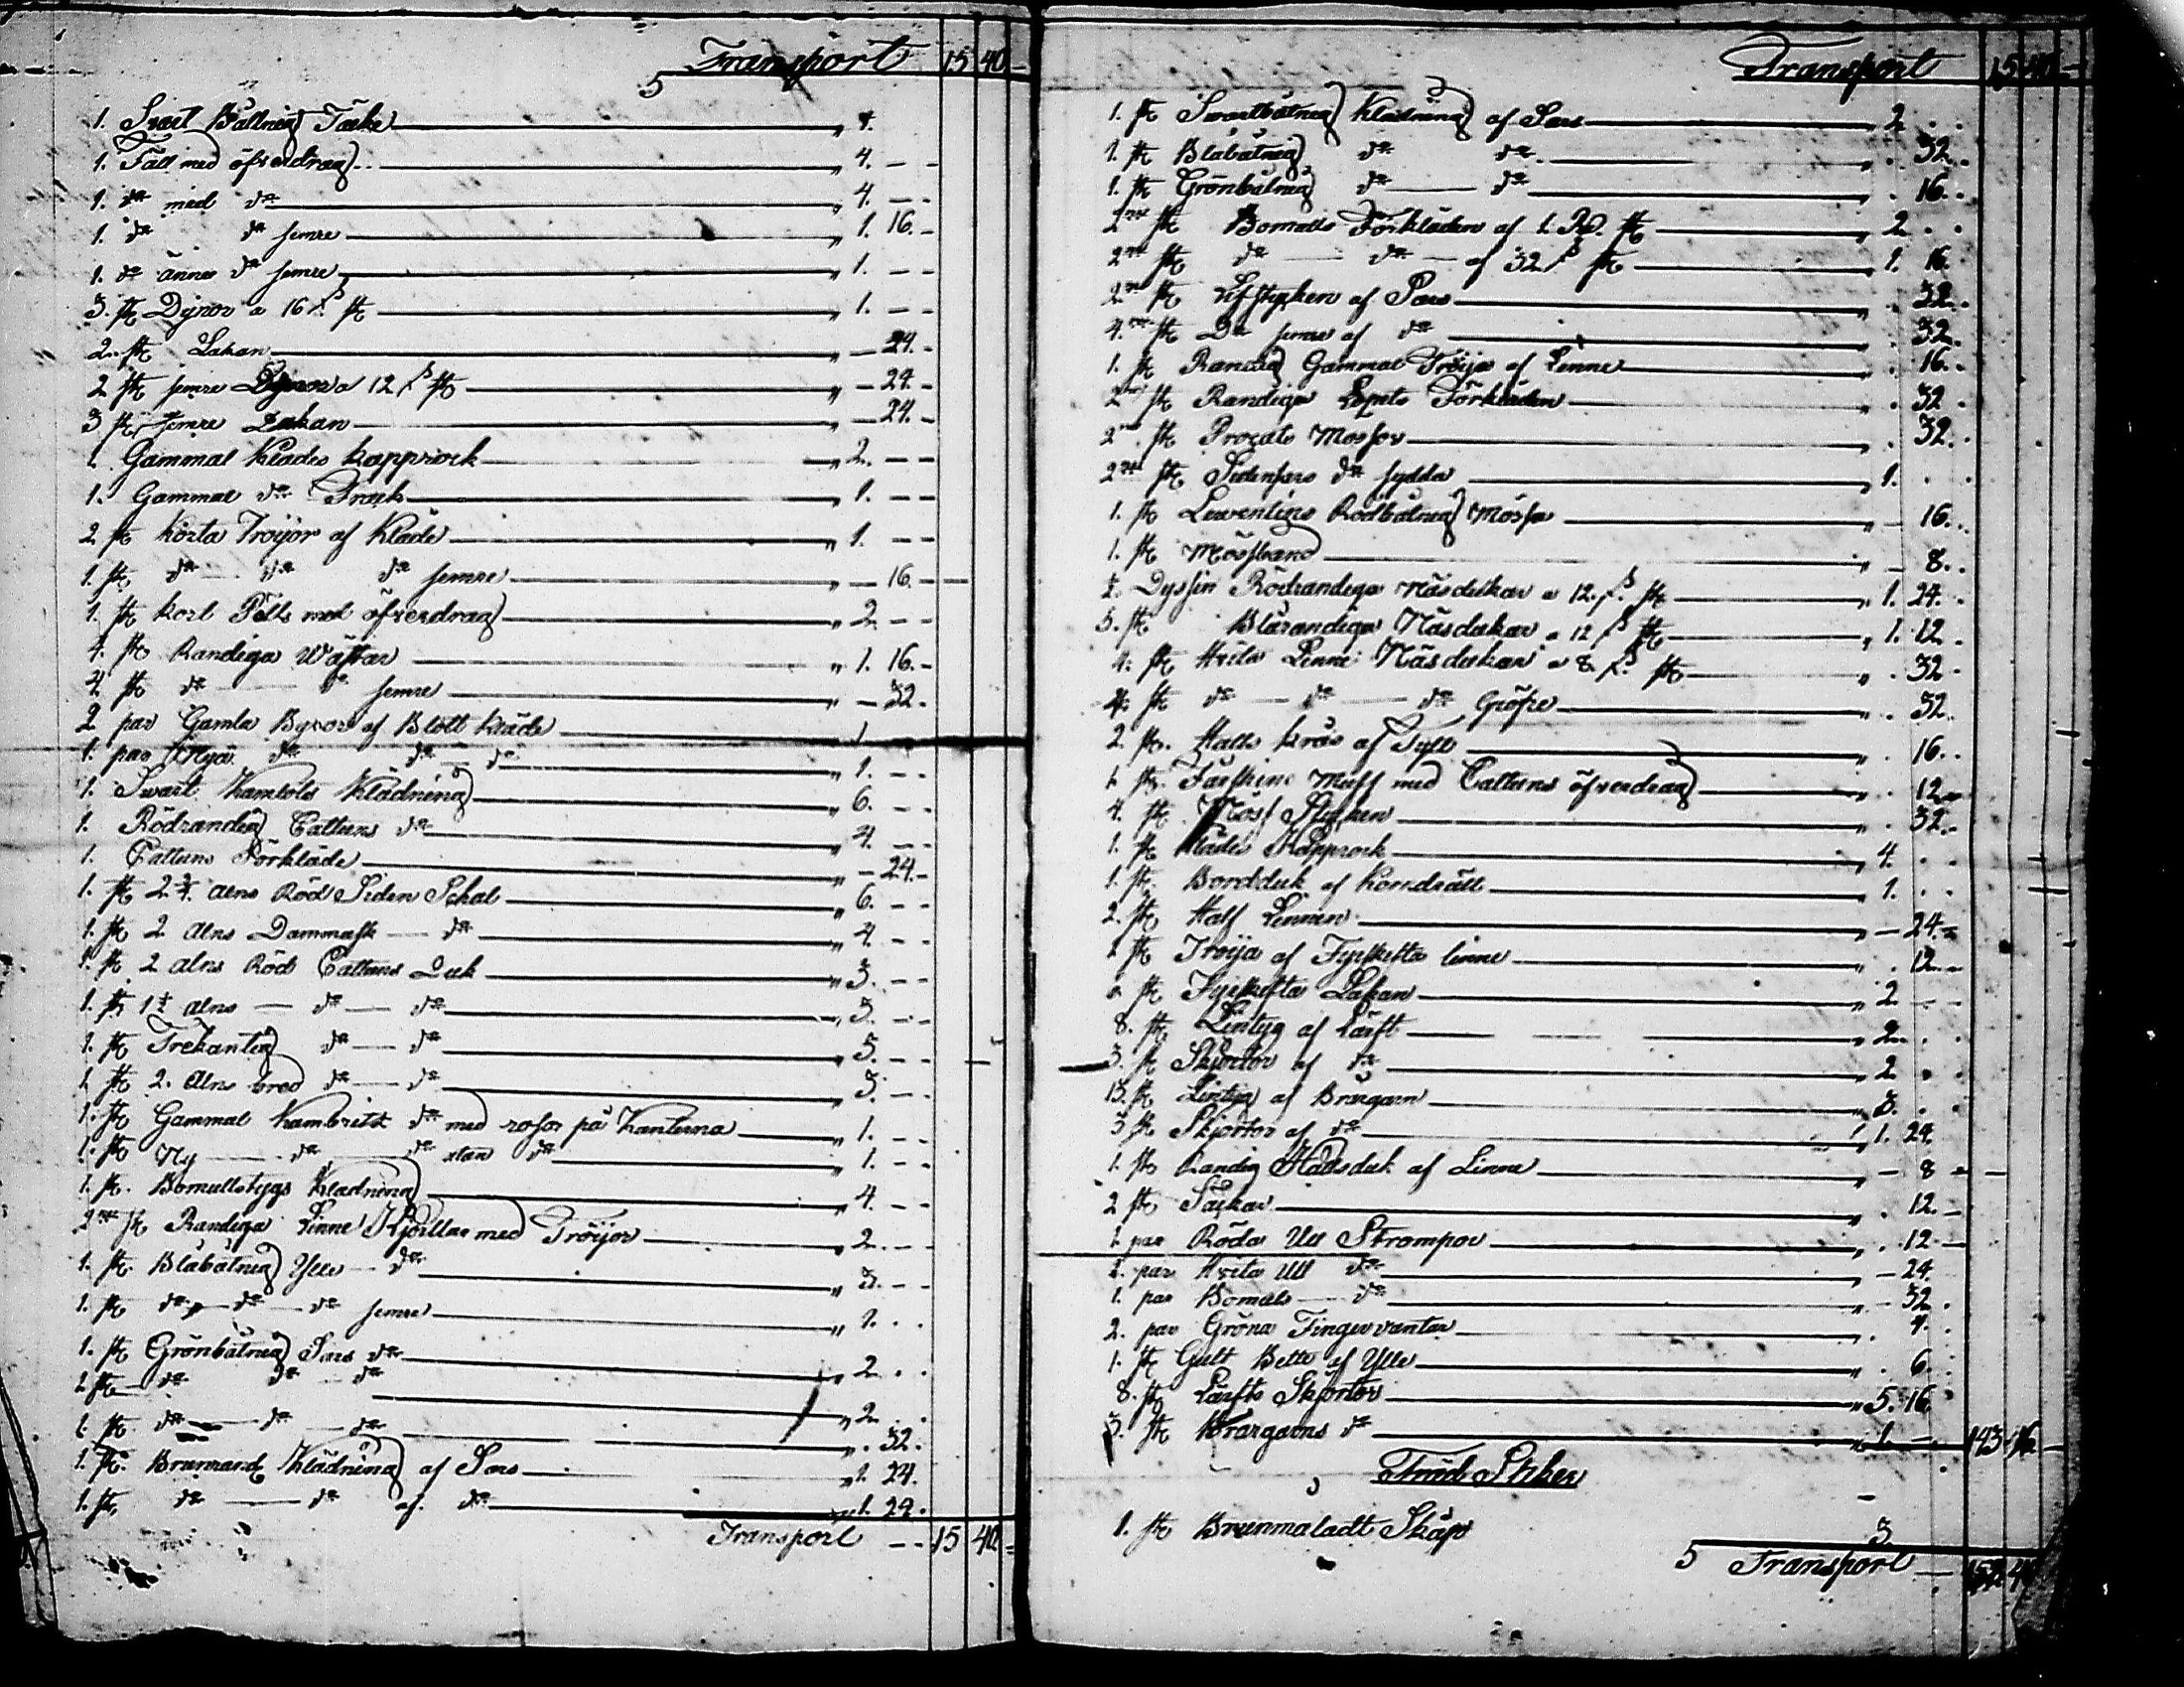 Transport 15 40 -
5
1. Svart Båttneg Täcke „ 4.
1. Fäll med öfverdrag „ 4. - -
1. do med do „ 4. - -
1. do do semre „ 1. 16. -
1. do ännu do semre „ 1. - -
3. st Dynor a 16 s st „ 1. - -
2. st Lakan „ - 24. -
2 st semre Dynor a 12 s st „ - 24. -
3 st semre Lakan „ - 24. -
1. Gammal Klädes kapprock „ 2. - -
1. Gammal do Frack „ 1. - -
2 st Korta Tröijor af Kläde „ 1. - -
1. st do do do semre „ - 16. -
1. st kort Pälts med öfverdrag „ 2. - -
4. st Randiga Wästar „ 1. 16. -
4 st do do semre „ - 32. -
2 par Gamla Byxor af Blött Kläde „ 1
1. par Nya do do do „ 1. - -
1. Svart Kamlots Klädning „ 6. - -
1. Rödrandig Cattuns do „ 4. - -
1. Cattuns Förkläde „ - 24. -
1. st 2 3/4 alns Röd Siden Schal „ 6. - -
1. st 2 alns Dammask do „ 4. - -
1. st 2 alns Röd Cattuns Duk „ 3. - -
1. st 1 1/2 alns - do - do „ 3. - -
1. st Trekantig do - do „ 3. - -
1. st 2. Alns bred do - do „ 3. - -
1. st Gammal Kambrits do med rosor på Kanterna „ 1. - -
1. st Ny - do - do utan do „ 1. - -
1. st. Bomullstygs Klädning „ 4. - -
2ne st Randiga Linne Kjortlar med Tröijor „ 2. - -
1. st. Blåbåtneg Ylle - do „ 3. - -
1. st do - do - do semre „ 1. . .
1. st Grönbåtneg Sars do „ 2 . .
1 st do do - do „ 2 . .
1. st do - do - do „ . 32 .
1. st. Brunrand Klädning af Sars „ 1. 24.
1. st do - do af do „ 1. 24.
Transport - - 15 40 -
Transport 15 40 -
1. st Svartbåtneg Klädning af Sars „ 2 . .
1. st Blåbåtneg do do „ . 32 . .
1. st Grönbåtneg do - do „ . 16 . .
2ne st Bomulls Förkläden af 1. Rd. st „ 2 . .
2ne st do - do - af 32 s st „ 1. 16.
2ne st Lifstycken af Sars „ . 32 . .
4. st Do semre af do „ . 32 .
1. st Randig Gammal Tröija af Linne „ . 16 . .
2ne st Randiga Förkläden „ . 32 .
2ne st Mössor „ . 32 . .
2ne st Sidensars do sydda „ 1. . .
1. st Rödbåtneg Mössa „ - 16 . .
1. st Mössband „ - 8. .
1/2 Dyssin Rödrandiga Näsdukar a 12 s. st „ 1. 24. .
5. st Blårandiga Näsdukar a 12 s st „ 1. 12 .
4. st Hvita Linne Näsdukar a 8 s. st „ . 32 .
4. st do - do - do Gröfre „ . 32.
2. st. Halls krås af Tyll „ . 16. .
1. st. Fårskins Muff med Cattuns öfverdrag „ . 12 .
4. st Möss Stycken „ . 32. .
1. st Klädes Kapprock „ 4. . .
1. st. Bordduk af Korndräll „ 1. . .
2. st Half Linnen „ - 24. -
1 st Tröija af Fyrskefta linne „ . 12 - -
st Fyrskefta Lakan „ 2 - -
8. st Lintyg af Lärft „ 2 . .
3. st Skjortor af do „ 2 . .
13. st Lintyg af Brårgarn „ 3. . .
3 st Skjortor af do „ 1. 24.
1. st Randig Halsduk af Linne - 8 - -
2 st Säckar „ . 12. -
1. par Röda Ull Strumpor „ . 12. -
1. par Hvita Ull do „ - 24.
1. par Bomuls do „ - 32 .
2. par Gröna Fingervantar „ . 4. .
1. st Gult Bälte af Ylle „ . 6. .
8. st Lärfts Skjortor „ 5. 16.
3. st Brårgarns do „ 1 - - 143 16 -
Träd Saker
1. st Brunmaladt Skåp 3
5 Transport - 152 40